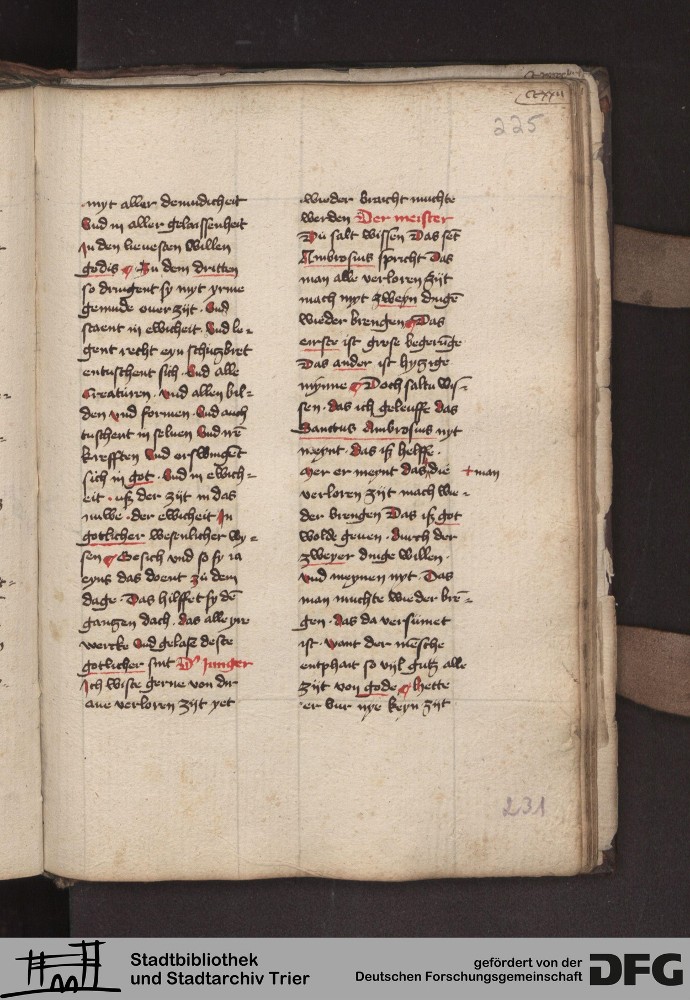 ccxxij
225
myt aller demudicheit
Vnd in aller gelaissenheit
In den lieuesten willen
godis Zu dem dritten
so dringent sy myt yrme
gemude ouer zijt Vnd
staent in ewicheit Vnd le-
gent recht eyn schuzbret
entuschent sich Vnd alle
Creaturen vnd allen bil-
den vnd formen Vnd auch
tuschent in seluen Vnd yre
krefften Vnd erswingēt
sich in got Vnd in ewich-
eit uß der zijt in das
nuwe der ewicheit In
gotlicher wesenlicher wy-
sen Gesich vnd so sy ia
eyns das doent zu dem
dage Das hilffet sy dē
gantzen dach das alle yre
wercke Vnd gelasz deste
gotlicher sint Dʳ Iunger
Ich wiste gerne von dir
aue verloren zijt yet
wieder bracht muchte
werden Der meister
Du salt wissen Das sēt
Ambrosius spricht Das
man alle verloren zijt
mach myt zweyn dingē
wieder brengen Das
eirste ist grose begerūge
Das ander ist hytzige
mynne Doch saltu wis-
sen das ich geleuffe das
Sanctus Ambrosius nyt
meynt das iß helffe
Mer er meynt das die + man
verloren zijt mach wie-
der brengen Das iß got
wolde geuen durch der
zweyer dinge willen
Vnd meynen nyt Das
man muchte wieder brē-
gen das da versūmet
ist want der mēsche
entphait so vijl gutz alle
zijt von gode Hette
er vur nye keyn zijt
231
Stadtbibliothek
und Stadtarchiv Trier
gefördert von der
Deutschen Forschungsgemeinschaft
DFG